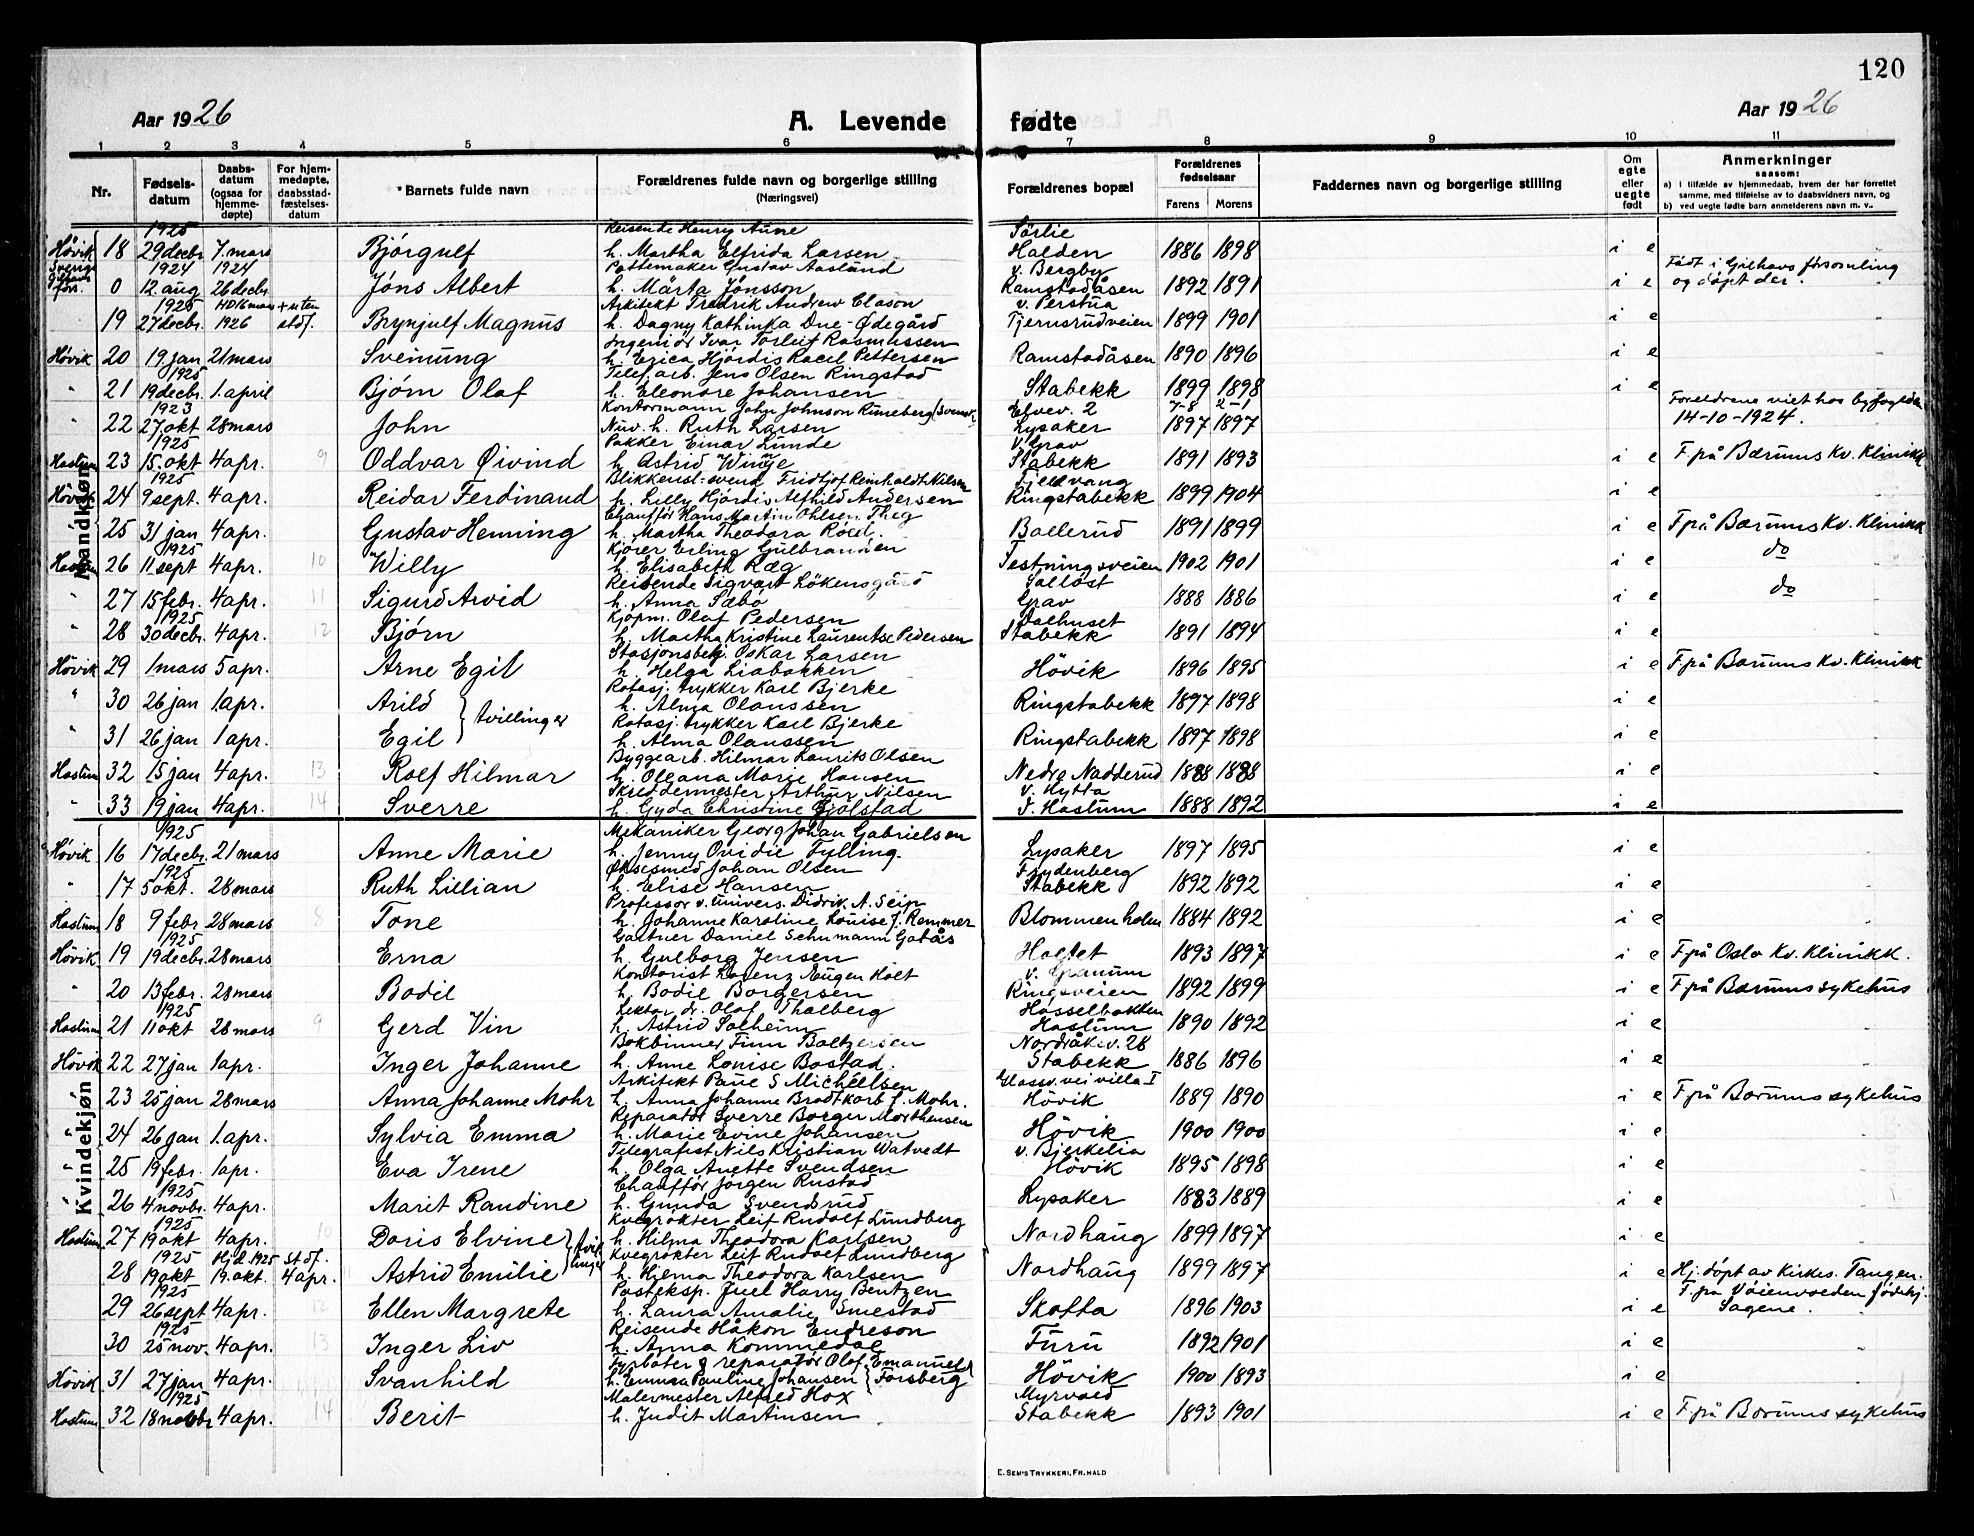 120
Aar 1926
A. Levende fødte
Aar 1926
1 2 3 4 5 6 7 8 9 10 11
Nr.
Fødsels-
datum
Daabs-
datum
(ogsaa for
hjemme-
døpte)
For hjem-
medøpte,
daabsstad-
fæstelses-
datum
*Barnets fulde navn
Forældrenes fulde navn og borgerlige stilling
(Næringsvei)
Forældrenes bopæl
Forældrenes
fødselsaar
Farens Morens
Faddernes navn og borgerlige stilling
Om
egte
eller
uegte
født
Anmerkninger
saasom:
a) i tilfælde av hjemmedaab, hvem der har forrettet
samme, med tilføielse av to daabsvidners navn, og
b) ved uegte fødte barn anmelderens navn m. v..
Mandkjøn
1925 Reisende Henry Aune Sörlie
Hövik 18 29 decbr 7. mars Bjórgulf h. Martha Elfrida Larsen Halden 1886 1898 i e
1924 1924 Pottemaker Gustav Aasland v. Bergby Födt i Gilhavs försomling
0 12. aug 26 decbr Jóns Albert h. Märta Jónsson Ramstadåsen 1892 1891 i e og döpt der.
1925 HD 16 mars + uten Arkitekt Fredrik Andrew Clason v. Perstua
19 27 decbr. 1926 st df. Brynjulf Magnus h. Dagny Kathinka Due-Ødegård Tjernsrudveien 1899 1901 i e
Ingeniör Ivar Torleif Rasmussen
Hövik 20 19 jan 21 mars Sveinung h. Erica Hjördis Racel Pettersen Ramstadåsen 1890 1896 i e
1925 Telef. arb. Jens Olsen Ringstad
" 21 19 decbr. 1. april Bjórn Olaf h. Eleonore Johansen Stabekk 1899 1898 i e
1923 Kontormann John Johnson Runeberg (svensk) Elvev. 2 7-8 2-1 Foreldrene viet hos byfogden
" 22 27. okt 28 mars John Nuv. h. Ruth Larsen Lysaker 1897 1897 14-10-1924.
1925 Pakker Einar Lunde v. Grav
Haslum 23 15. okt 4 apr. 9 Oddvar Øivind h. Astrid Winge Stabekk 1891 1893 i e F. på Bærums Kv. Klinikk
1925 Blikkensl-svend Fridtjof Reinholdt Nilsen Fjellvang
Hövik 24 9 sept. 4 apr. Reidar Ferdinand h. Lilly Hjördis Alfhild Andersen Ringstabekk 1899 1904 i e
Chaufför Hans Martin Ohlsen Theg
25 31 jan 4 apr. Gustav Henning h. Martha Theodora Röed. Ballerud 1891 1899 i e F på Bærums Kv. Klinikk
1925 Kjórer Erling Gulbrandsen
Haslum 26 11 sept 4 apr. 10 Willy h. Elisabeth Ræg Festningsveien 1902 1901 i e do
Reisende Sigvart Lökensgård Solløst
" 27 15 febr. 4 apr. 11 Sigurd Arvid h. Anna Sæbö Grav 1888 1886 i e do
1925 Kjöpm. Olaf Pedersen Solhuset
" 28 30 decbr. 4 apr. 12 Bjørn h. Martha Kristine Laurentse Pedersen Stabekk 1891 1894 i e
Stasjonsbetj. Oskar Larsen
Hövik 29 1 mars 5 apr. Arne Egil h. Helga Liabakken Hövik 1896 1895 i e F på Bærums Kv. Klinikk
Rotasj. trykker Karl Bjerke
" 30 26 jan 1 apr. Arild } tvillinger h. Alma Olaussen Ringstabekk 1897 1898 i e
Rotasj. trykker Karl Bjerke
" 31 26 jan 1 apr. Egil h. Alma Olaussen Ringstabekk 1897 1898 i e
Byggearb. Hilmar Laurits Olsen
Haslum 32 15 jan 4 apr. 13 Rolf Hilmar h. Oleana Marie Hansen Nedre Nadderud 1888 1888 i e
Skreddermester Arthur Nilsen v. Hytta
" 33 19 jan 4 apr. 14 Sverre h. Gyda Christine Gjölstad T. Haslum 1888 1892 i e
Kvindekjøn
1925 Mekaniker Georg Johan Gabrielsen
Hövik 16 17 decbr. 21 mars Anne Marie h. Jenny Ovidie Tylling. Lysaker 1897 1895 i e
1925 Øksesmed Johan Olsen Frydenberg
" 17 5 okt. 28 mars Ruth Lillian h. Elise Hansen Stabekk 1892 1892 i e
Professor v. univers. Didrik A. Seip
Haslum 18 9 febr. 28 mars 8 Tone h. Johanne Karoline Louise f. Remmer Blommenholm 1884 1892 i e
1925 Gartner Daniel Schumann Gatås
Hövik 19 19 decbr. 28 mars Erna h. Gulborg Jensen Holtet 1893 1897 i e F. på Oslo Kv. Klinikk.
Kontorist Lorenz Eugen Holt v. Granum
" 20 13 febr. 28 mars Bodil h. Bodil Borgersen Ringsveien 1892 1899 i e F. på Bærums sykehus
1925 Lektor dr. Olaf Thalberg Hasselbakken
Haslum 21 11 okt 28 mars 9 Gerd Vin h. Astrid Solheim Haslum 1890 1892 i e
Bokbinner Finn Baltzersen Nordråksv. 28
Hövik 22 27 jan 1 apr. Inger Johanne h. Anne Louise Bostad. Stabekk 1886 1896 i e
Arkitekt Paul S Michéelsen Glassv.vei villa I
" 23 25 jan 28 mars Anna Johanne Mohr h. Anna Johanne Brodtkorb f. Mohr. Hövik 1889 1890 i e F. på Bærums sykehus
Reparatör Sverre Borger Morthensen
" 24 26 jan 1. apr. Sylvia Emma h. Marie Evine Johansen Hövik 1900 1900 i e
Telegrafist Nils Kristian Watvedt v. Bjerkelia
" 25 19 febr. 1 apr. Eva Irene h. Olga Anette Svendsen Hövik 1895 1898 i e
1925 Chaufför Jörgen Rustad
" 26 4 novbr. 4 apr. Marit Randine h. Gunda Svendsrud Lysaker 1883 1889 i e
1925 Kvegrökter Leif Rudolf Lundberg
Haslum 27 19 okt 4 apr. 10 Doris Elvine } tvillinger h. Hilma Theodora Karlsen Nordhaug 1899 1897 i e
1925 Hjd. 1925 st df. Kvegrökter Leif Rudolf Lundberg
28 19 okt 19. okt. 4 apr. Astrid Emilie h. Hilma Theodora Karlsen Nordhaug 1899 1897 i e Hj. döpt av Kirkes. Tangen.
1925 Posteksp. Juel Harry Bentzen F. på Vöienvolden födehj.
29 26 sept 4 apr. 12 Ellen Margrete h. Laura Amalie Smestad Skotta 1896 1903 i e Sagene.
1925 Reisende Håkon Endreson
30 25 nov. 4 apr. 13 Inger Liv h. Anna Kommedal Furu 1892 1901 i e
Fyrbøter & reparatör Olaf Emanuel
Hövik 31 27 jan 4 apr. Svanhild h. Emma Pauline Johansen } Forsberg Hövik 1900 1893 i e
1925 Malermester Alfred Hox Myrvold
Haslum 32 18 novbr 4 apr. 14 Berit h. Judit Martinsen Stabekk 1893 1901 i e F. på Bærums sykehus
E. SEM'S TRYKKERI, FR. HALD